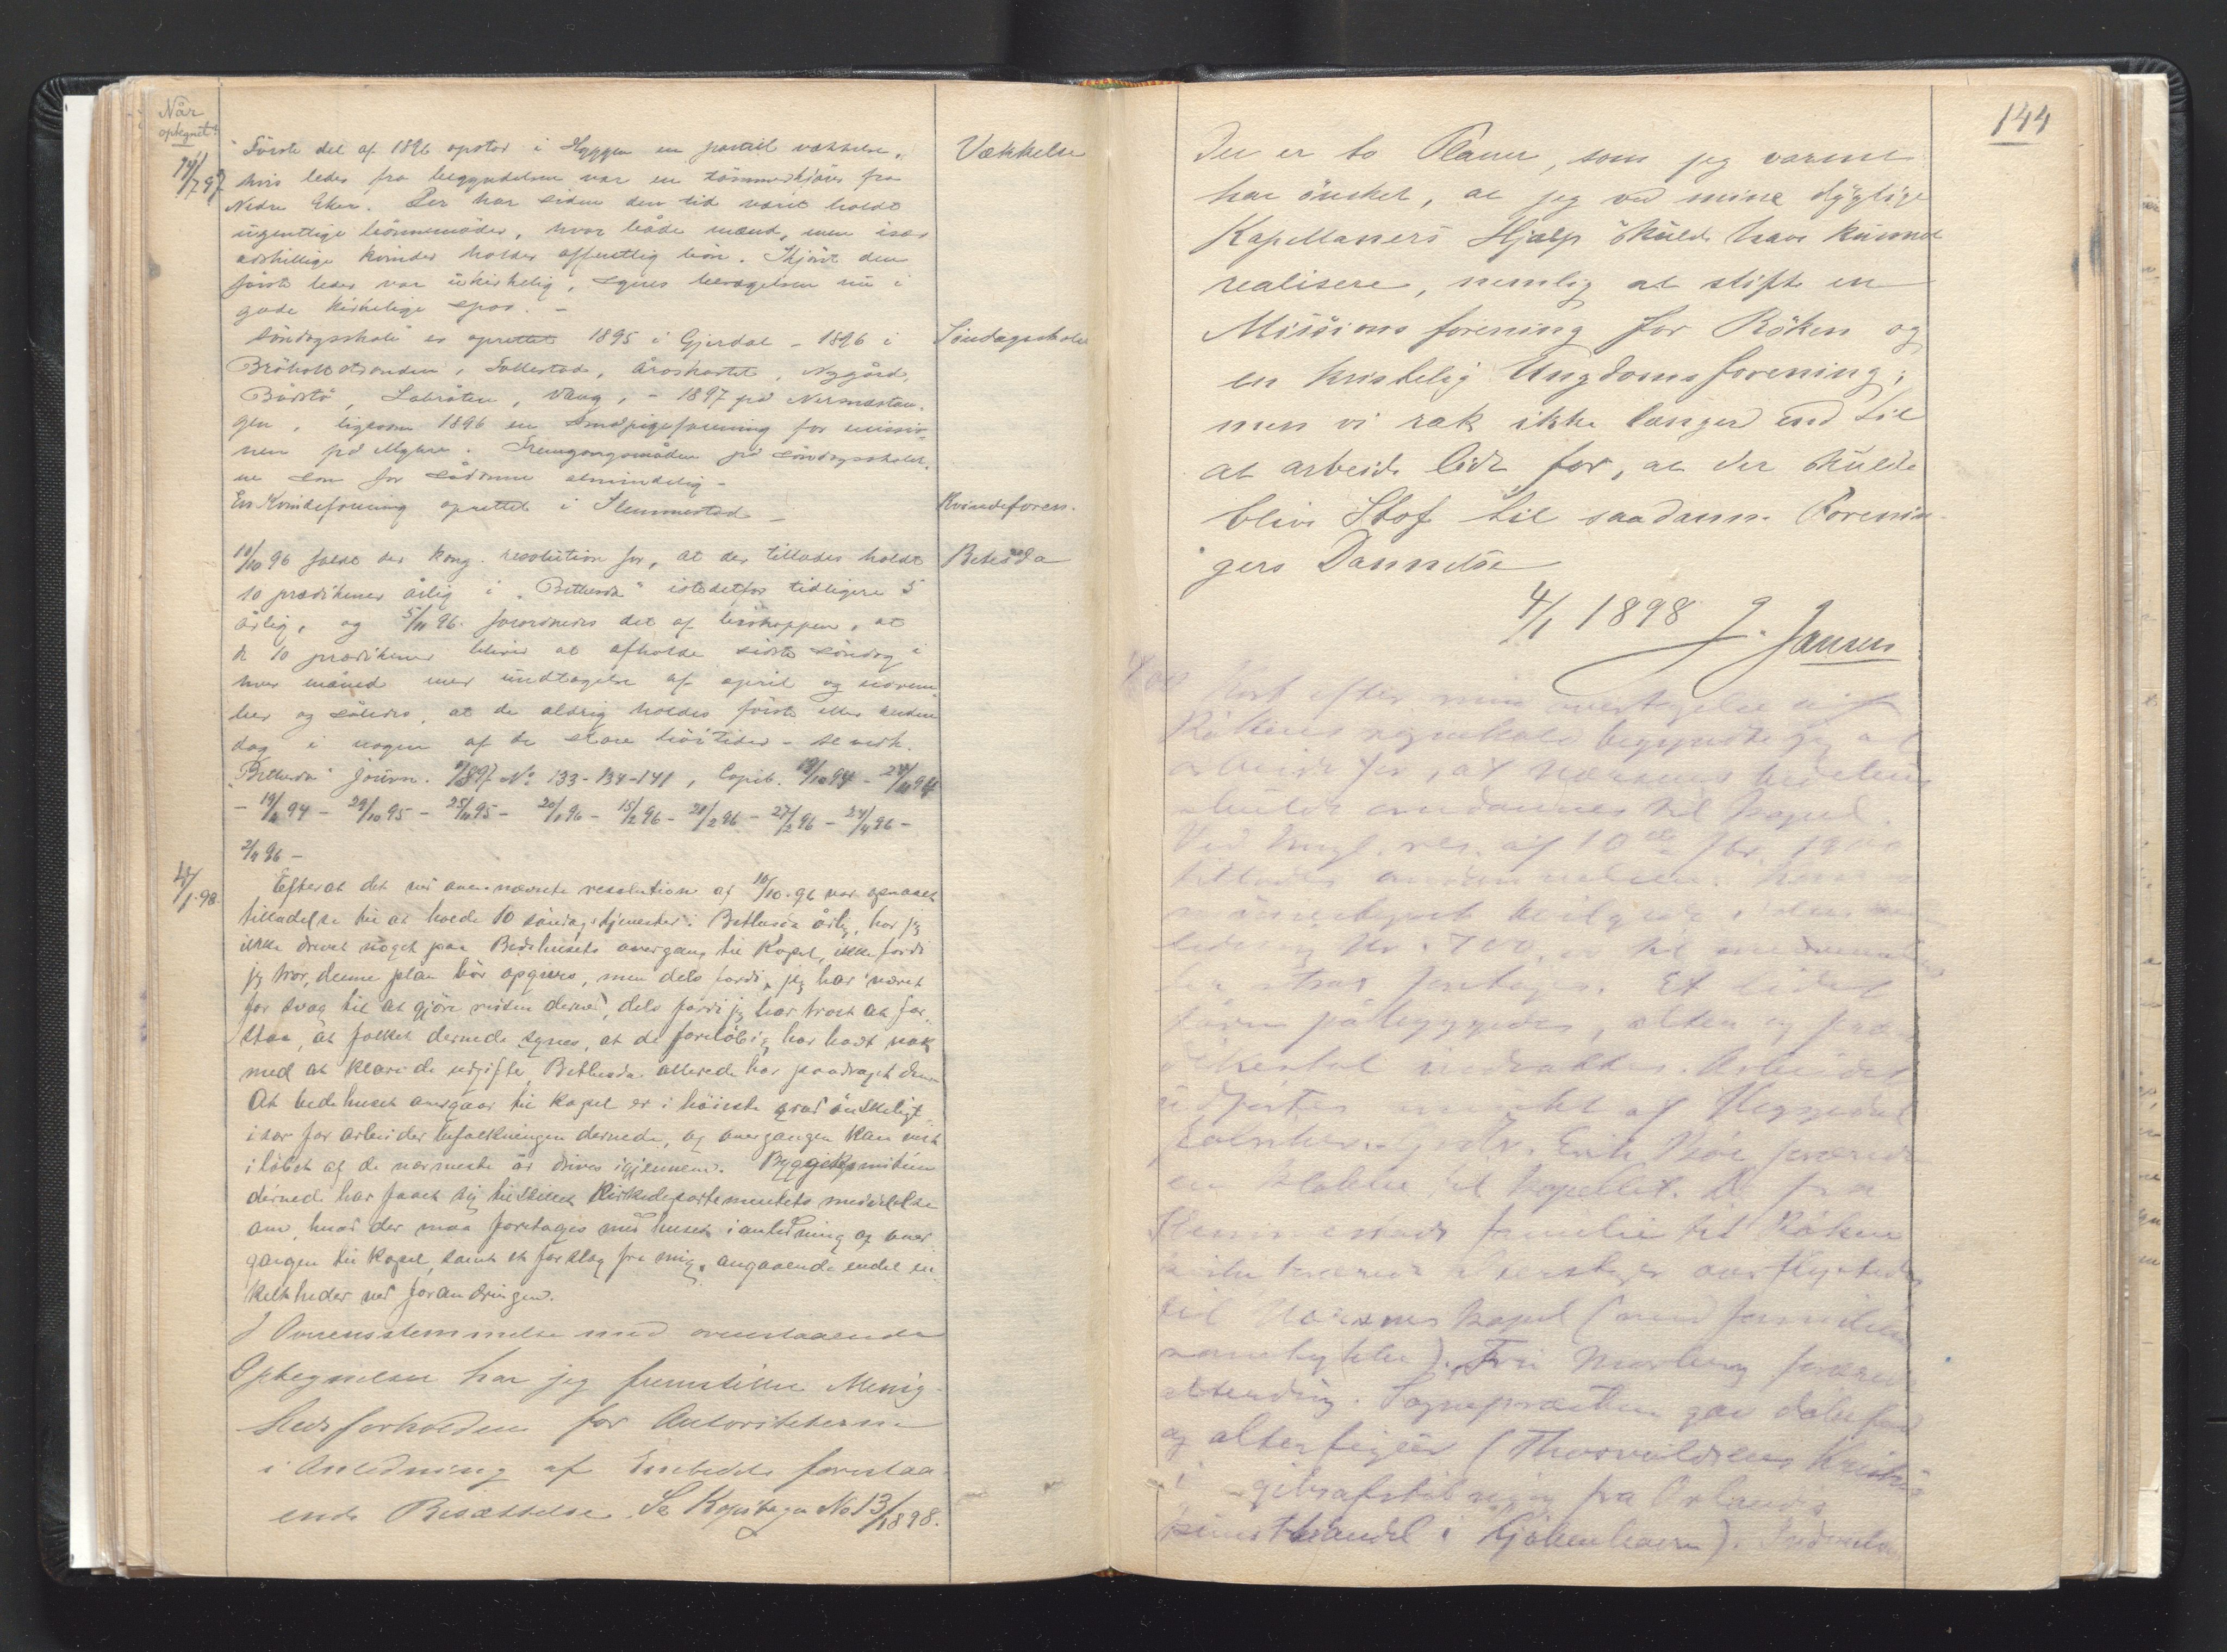 Når
optegnet?
14/7 97
Første del af 1896 opstod i Hyggen en partiel vækkelse,
hvis leder fra begyndelsen var en tømmerkjører fra
Nedre Eker. Der har siden den tid været holdt
ugentlige bønnemøder, hvor både mænd, men især
adskillige kvinder holder offentlig bøn. Skjønt den
første leder var ukirkelig, synes bevægelsen nu i
gode kirkelige spor. –
Vækkelse
Søndagsskole er oprettet 1895 i Gjerdal – 1896 i
Bröholtstranden, Follestad, Åroskortet, Nygård,
Bårstö, Labråten, Vang, – 1897 på Nærsnestan-
gen, ligesom 1896 en småpigeforening for missio-
nen på Myhre. Fremgangsmåden på søndagsskoler-
ne som for sådanne almindelig –
Søndagsskole
En Kvindeforening oprettet i Slemmestad –
Kvindeforen.
10/10 96 faldt der kong. resolution for, at der tillades holdt
10 prædikener årlig i "Bethesda" istedetfor tidligere 5
årlig, og 5/11 96 forordnedes det af biskoppen, at
de 10 prædikener bliver at afholde sidste søndag i
hver måned med undtagelse af april og novem-
ber og således, at de aldrig holdes første eller anden
dag i nogen af de store høitider – se vedk.
"Bethesda" Journ. 1897 No 133-134-141, Copib. 13/10 94 – 24/11 94
– 19/12 94 – 29/10 95 – 25/11 95 – 20/1 96 – 15/2 96 – 21/2 96 – 27/2 96 – 24/4 96 –
2/11 96 –
Bethesda
4/1 98
Efterat det ved ovennævnte resolution af 10/10.96 var opnaaet
tilladelse til at holde 10 søndagstjenester i Bethesda årlig, har jeg
ikke drevet noget paa Bedehusets overgang til Kapel, ikke fordi
jeg tror, denne plan bör opgives, men dels fordi jeg har været
for svag til at gjöre reisen derned, dels fordi jeg har trodt at for-
staa, at folket dernede synes, at de foreløbig har havt nok
med at klare de udgifter, Bethesda allerede har paadraget dem.
At bedehuset overgaar til kapel er i höieste grad önskeligt
især for arbeiderbefolkningen dernede, og overgangen kan vist
i løbet af de nærmeste år drives igjennem. Byggekomiteen
dernede har faaet sig tilstillet Kirkedepartementets meddelelse
om, hvad der maa foretages med huset i anledning af over
gangen til kapel, samt et forslag fra mig angaaende endel en
keltheder ved forandringen.
I Overensstemmelse med ovenstaaende
Optegnelser har jeg fremstillet Menig-
hedsforholdene for Autoriteterne
i Anledning af Embedets forestaa-
ende Besættelse. Se Kopibogen No 13/1898.
144
Der er to Planer, som jeg varmt
har ønsket, at jeg ved mine dygtige
Kapellaners Hjælp skulde have kunnet
realisere, nemlig at stifte en
Missionsforening for Röken og
en kristelig Ungdomsforening;
men vi rak ikke længer end til
at arbeide lidt for, at der skulde
blive Stof til saadanne Forenin-
gers Dannelse
4/1 1898 J. Jansen
Kort efter min overtagelse af
Rökens sognekald begyndte jeg at
arbeide for, at Nærsnes bedehus
skulde omdannes til kapel.
Ved kngl. res. af 10de 1900
tillodes
kr. 700,
strax foretages. Et lidet
tårn påbyggedes, alter og præ-
dikestol indsattes. Arbeidet
udførtes af Heggedal
Erik Böe forærede
en klokke til kapellet. De fra
Slemmestads familie til Röken
kirke overflyttedes
til Nærsnes kapel (med familiens
samtykke). Fru forærede
alterdug. Sognepræsten gav døbefond
og alterfigur (Thorvaldsens Kristus
i gibsafstøbning fra
kunsthandel i Kjøbenhavn).